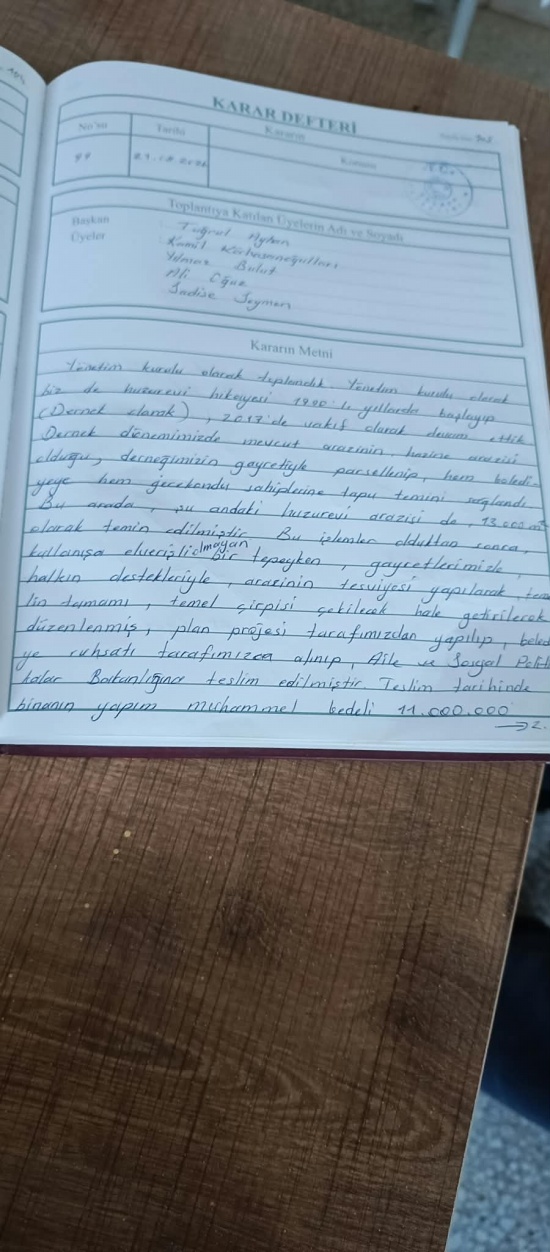 KARAR DEFTERİ
No'su Tarihi Kararın Konusu
T.C.
Toplantıya Katılan Üyelerin Adı ve Soyadı
Başkan : Tuğrul Aytan
Üyeler : Kamil
Yılmaz Bulut
Ali Oğuz
Sadise Seymen
Kararın Metni
Yönetim kurulu olarak toplandık. Yönetim kurulu olarak
biz de huzurevi hikayesi 1990'lı yıllarda başlayıp
(Dernek olarak), 2017'de vakıf olarak devam ettik
Dernek dönemimizde mevcut arazinin, hazine arazisi
olduğu, derneğimizin gayretiyle parsellenip, hem beledi-
yeye hem gecekondu sahiplerine tapu temini sağlandı.
Bu arada, şu andaki huzurevi arazisi de, 13.000 m²
olarak temin edilmiştir. Bu işlemler olduktan sonra,
kullanışa elverişli olmayan bir tepeyken, gayretlerimizle,
halkın destekleriyle, arazinin tesviyesi yapılarak, tem
lin tamamı, temel çirpisi çekilecek hale getirilerek
düzenlenmiş, plan projesi tarafımızdan yapılıp, beled
ye ruhsatı tarafımızca alınıp, Aile ve Sosyal Politi
kalar Bakanlığınca teslim edilmiştir. Teslim tarihinde
binanın yapım muhammel bedeli 11.000.000
→ 2.